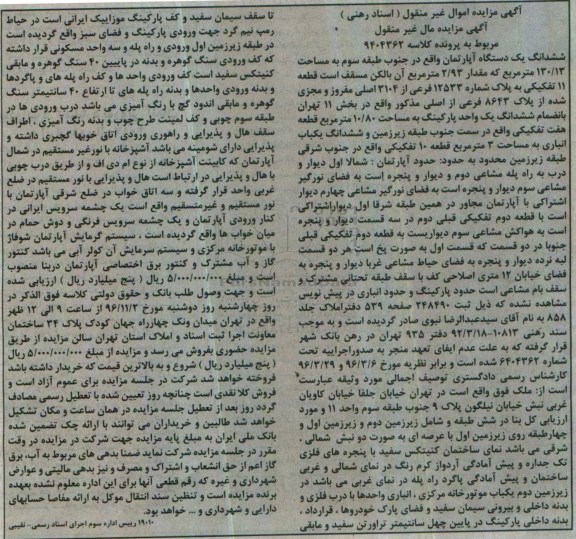 آگهی مزایده اموال غیر منقول ( اسناد رهنی )
آگهی مزایده مال غیر منقول
مربوط به پرونده کلاسه ۹۴۰۴۳۶۲
ششدانگ یک دستگاه آپارتمان واقع در جنوب طبقه سوم به مساحت
۱۳۰/۱۳ مترمربع که مقدار ۲/۹۳ مترمربع آن بالکن مسقف است قطعه
۱۱ تفکیکی به پلاک شماره ۱۲۵۳۳ فرعی از ۳۱۰۴ اصلی مفروز و مجزی
شده از پلاک ۸۶۴۳ فرعی از اصلی مذکور واقع در بخش ۱۱ تهران
بانضمام ششدانگ یک واحد پارکینگ به مساحت ۱۰/۸۰ مترمربع قطعه
هفت تفکیکی واقع در سمت جنوب طبقه زیرزمین و ششدانگ یکباب
انباری به مساحت ۳ مترمربع قطعه ۱۰ تفکیکی واقع در جنوب شرقی
طبقه زیرزمین محدود به حدود: حدود آپارتمان : شمالا اول دیوار و
درب به راه پله مشاعی دوم و دیوار و پنجره است به فضای نورگیر
مشاعی سوم دیوار و پنجره است به فضای نورگیر مشاعی چهارم دیوار
اشتراکی با آپارتمان مجاور در همین طبقه شرقا اول دیواراشتراکی
است با قطعه دوم تفکیکی قبلی دوم در سه قسمت دیوار و پنجره
است به هواکش مشاعی سوم دیواریست به قطعه دوم تفکیکی قبلی
جنوبا در دو قسمت که قسمت اول به صورت پخ است هر دو قسمت
لبه نرده دیوار و پنجره به فضای حیاط مشاعی غربا دیوار و پنجره به
فضای خیابان ۱۲ متری اصلاحی کف با سقف طبقه تحتانی مشترک و
سقف بام مشاعی است حدود پارکینگ و حدود انباری در پیش نویس
مشاهده نشده که ذیل ثبت ۲۴۸۴۹۰ صفحه ۵۳۹ دفتراملاک جلد
۸۵۸ به نام آقای سیدعبدالرضا نبوی صادر گردیده است و به موجب
سند رهنی ۱۰۸۱۳-۹۲/۳/۱۸ دفتر ۹۳۵ تهران در رهن بانک شهر
قرار گرفته که به علت عدم ایفای تعهد منجر به صدوراجراییه تحت
شماره ۶۴۰۴۳۶۲ شده است و برابر نظریه مورخ ۹۶/۳/۶ و ۹۶/۳/۲۹
کارشناس رسمی دادگستری توصیف اجمالی مورد وثیقه عبارست
است از: ملک فوق واقع است در تهران خیابان جلفا خیابان کاویان
غربی نبش خیابان نیلگون پلاک ۹ جنوب طبقه سوم واحد ۱۱ و مورد
ارزیابی کل بنا در شش طبقه و شامل زیرزمین دوم و زیرزمین اول و
چهارطبقه روی زیرزمین اول با عرصه ای به صورت دو نبش شمالی ،
شرقی می باشد نمای ساختمان کنیتکس سفید با پنجره های فلزی
تک جداره و پیش آمادگی آردواز کرم رنگ در نمای شمالی و غربی
ساختمان و پیش آمادگی پاگرد راه پله در نمای غربی می باشد در
زیرزمین دوم یکباب موتورخانه مرکزی ، انباری واحدها با درب فلزی و
بدنه داخلی و بیرونی سیمان سفید و فضای پارک خودروها ، قرارداد ،
بدنه داخلی پارکینگ در پایین چهل سانتیمتر تراورتن سفید و مابقی
تا سقف سیمان سفید و کف پارکینگ موزاییک ایرانی است در حیاط
رمپ نیم گرد جهت ورودی پارکینگ و فضای سبز واقع گردیده است
در طبقه زیرزمین اول ورودی و راه پله و سه واحد مسکونی قرار داشته
که کف ورودی سنگ گوهره و بدنه در پایین ۴۰ سنگ گوهره و مابقی
کنیتکس سفید است کف ورودی واحد ها و کف راه پله های و پاگردها
و بدنه ورودی واحدها و بدنه راه پله های تا ارتفاع ۴۰ سانتیمتر سنگ
گوهره و مابقی اندود گچ با رنگ آمیزی می باشد درب ورودی ها در
طبقه سوم چوبی و کف لمینت طرح چوب و بدنه رنگ آمیزی ، اطراف
سقف هال و پذیرایی و راهروی ورودی اتاق خوبها گچبری داشته و
پذیرایی دارای شومینه می باشد آشپزخانه با نورغیر مستقیم در شمال
آپارتمان که کابینت آشپزخانه از نوع ام دی اف و از طریق درب چوبی
با هال و پذیرایی در ارتباط است هال و پذیرایی با نور مستقیم در ضلع
غربی واحد قرار گرفته و سه اتاق خواب در ضلع شرقی آپارتمان با
نور مستقیم و غیرمستقیم واقع است یک چشمه سرویس ایرانی در
کنار ورودی آپارتمان و یک چشمه سرویس فرنگی و دوش حمام در
میان خواب ها واقع گردیده است ، سیستم گرمایش آپارتمان شوفاژ
با موتورخانه مرکزی و سیستم سرمایش آن کولر آبی می باشد کنتور
گاز و آب مشترک و کنتور برق اختصاصی آپارتمان دربنا منصوب
است و مبلغ ۵/۰۰۰/۰۰۰/۰۰۰ ریال ( پنج میلیارد ریال ) ارزیابی شده
است و جهت وصول طلب بانک و حقوق دولتی کلاسه فوق الذکر در
روز چهارشنبه روز دوشنبه مورخ ۹۶/۱۱/۲ از ساعت ۹ الی ۱۲ ظهر
واقع در تهران میدان ونک چهارراه جهان کودک پلاک ۳۴ ساختمان
معاونت اجرا ثبت اسناد و املاک استان تهران سالن مزایده از طریق
مزایده حضوری بفروش می رسد و مزایده از مبلغ ۵/۰۰۰/۰۰۰/۰۰۰ ریال
( پنج میلیارد ریال ) شروع و به بالاترین قیمت که خریدار داشته باشد
فروخته خواهد شد شرکت در جلسه مزایده برای عموم آزاد است و
فروش کلا نقدی است چنانچه روز تعیین شده با تعطیل رسمی مصادف
گردد روز بعد از تعطیل جلسه مزایده در همان ساعت و مکان تشکیل
خواهد شد طالبین و خریداران می توانند با ارائه چک تضمین شده
بانک ملی ایران به مبلغ پایه مزایده جهت شرکت در مزایده در وقت
مقرر در جلسه مزایده شرکت نماید ضمنا بدهی های مربوط به آب، برق
گاز اعم از حق انشعاب و اشتراک و مصرف و نیز بدهی مالیتی و عوارض
شهرداری و غیره که رقم قطعی آنها برای این اداره معلوم نشده بعهده
برنده مزایده است و تنظیم سند انتقال موکل به ارائه مفاصا حسابهای
دارایی و شهرداری و ... خواهد بود.
۱۹۰۱۰ رییس اداره سوم اجرای اسناد رسمی- نقیبی